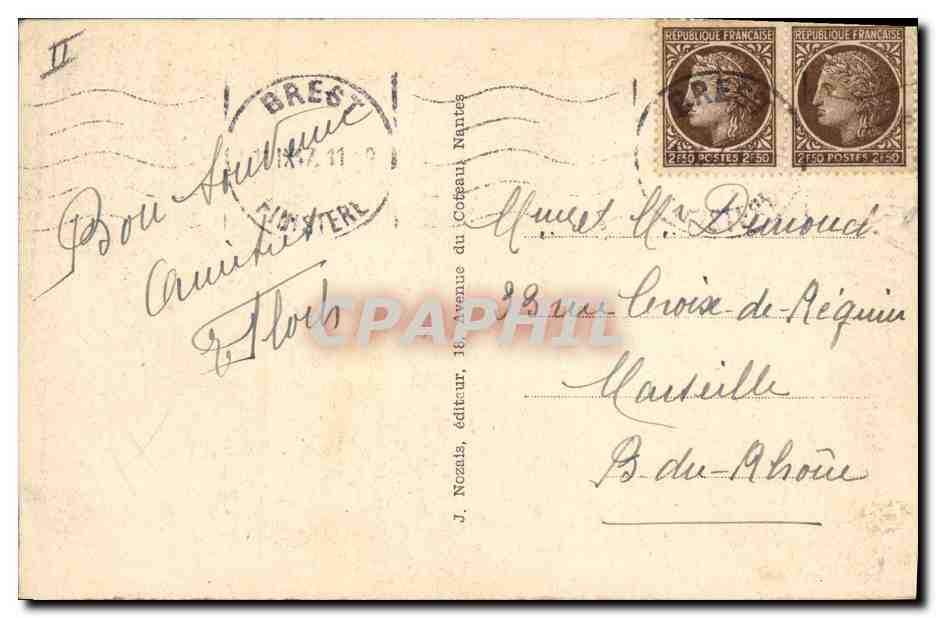 II
BREST
FINISTERE
Bon Souvenir
Amitiés
REPUBLIQUE FRANÇAISE
2F50 POSTES 2F50
REPUBLIQUE FRANÇAISE
2F50 POSTES 2F50
BREST
J. Nozais, éditeur, 18, Avenue du Coteau, Nantes
Mme et Mr
33 rue Croix-de-Réguier
Marseille
B-du-Rhône
CPAPHIL